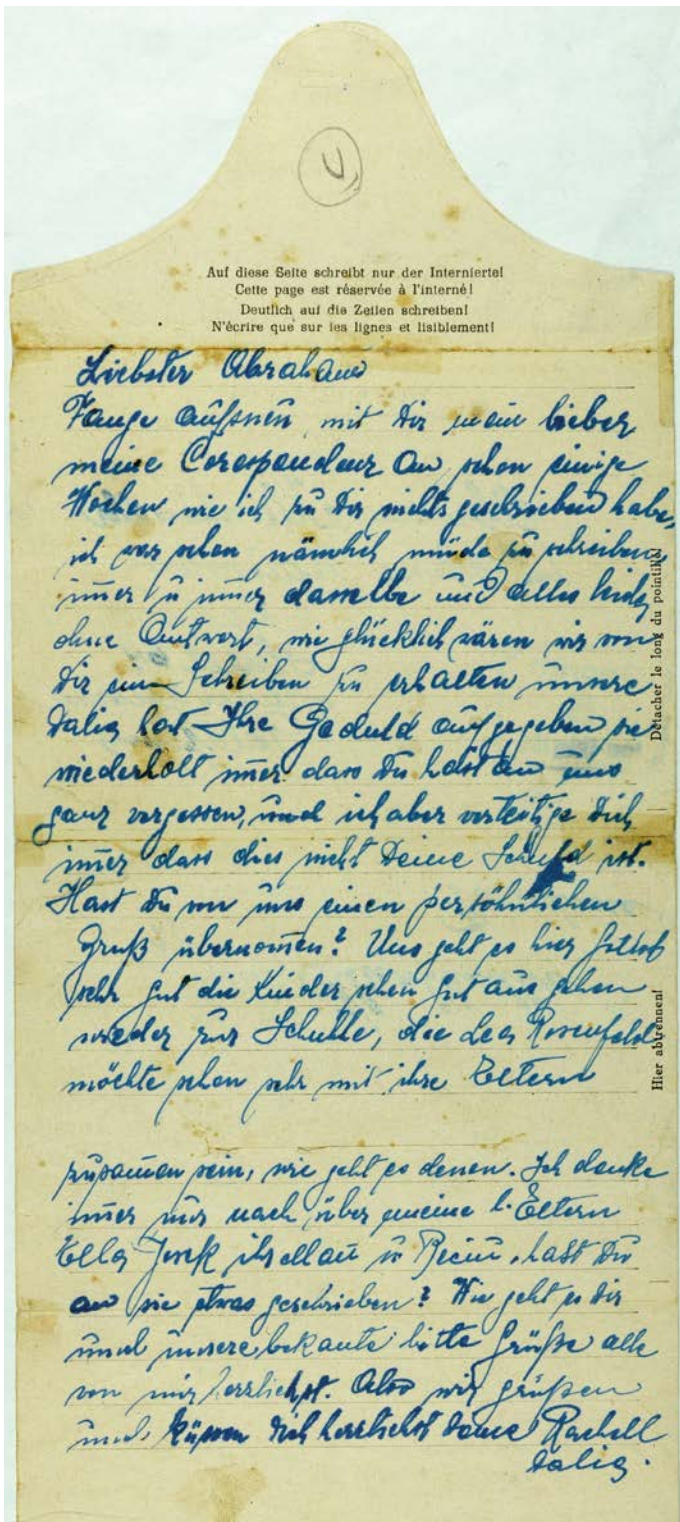 U
Auf diese Seite schreibt nur der Internierte!
Cette page est réservée à l'interné!
Deutlich auf die Zeilen schreiben!
N'écrire que sur les lignes et lisiblement!
Liebster Abraham
Fange aufsneu, mit Dir mein lieber
meine Corespondenz an, schon einige
Wochen wie ich zu Dir nichts geschrieben habe,
ich war schon nämlich müde zu schreiben,
immer u immer dasselbe und alles leider
ohne Antwort, wie glücklich wären wir von
Dir ein Schreiben zu erhalten unsere
Dalia hat Ihre Geduld aufgegeben sie
wiederholt immer dass Du hast an uns
ganz vergessen, und ich aber verteitige Dich
immer dass dies nicht Deine Schuld ist.
Hast Du von uns einen persöhnlichen
Gruß übernomen? Uns geht es hier Gottlob
sehr gut die Kinder sehen gut aus gehen
wieder zur Schulle, die Lea Rosenfeld
möchte schon sehr mit ihre Eltern
Détacher le long du pointillé!
Hier abtrennen!
zusamen sein, wie geht es denen. Ich denke
immer nur nach über meine l. Eltern
Ella, hast Du
an sie etwas geschrieben? Wie geht es Dir
und unsere bekante bitte Grüße alle
von mir herzlichst. Also wir grüßen
und küssen Dich herzlichst Deine Rachell
Dalia.